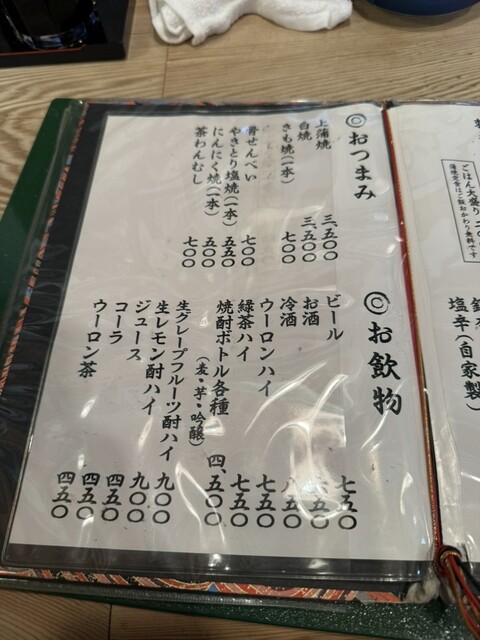 ごはん大盛り
蒲焼定食はご飯おかわり無料です
塩辛(自家製)
◎おつまみ
上蒲焼 三、五〇〇
白焼 三、五〇〇
きも焼(一本) 七〇〇
骨せんべい 七〇〇
やきとり塩焼(一本) 五五〇
にんにく焼(一本) 五〇〇
茶わんむし 七〇〇
◎お飲物
ビール 七五〇
お酒 六五〇
冷酒 八五〇
ウーロンハイ 七五〇
緑茶ハイ 七五〇
焼酎ボトル各種 四、五〇〇
(麦・芋・吟醸)
生グレープフルーツ酎ハイ 九〇〇
生レモン酎ハイ 九〇〇
ジュース 四五〇
コーラ 四五〇
ウーロン茶 四五〇